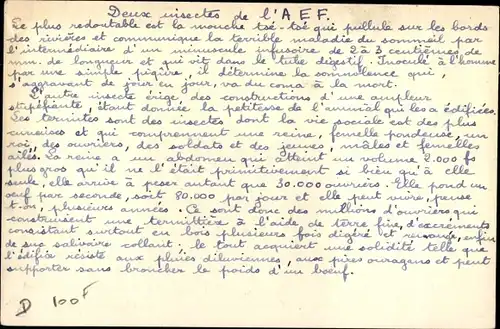 Deux insectes de l'A E F.
Le plus redoutable est la mouche tsé-tsé qui pullule sur les bords
des rivières et communique la terrible maladie du sommeil par
l'intermédiaire d'un minuscule infusoire de 2 à 3 centièmes de
mm. de longueur et qui vit dans le tube digestif. Inoculé à l'homme
par une simple piqûre, il détermine la somnolence qui,
s'aggravant de jour en jour, va du coma à la mort.
L'autre insecte érige des constructions d'une ampleur
stupéfiante, étant donnée la petitesse de l'animal qui les a édifiées.
Les termites sont des insectes dont la vie sociale est des plus
curieuses et qui comprennent une reine, femelle pondeuse, un
roi, des ouvriers, des soldats et des jeunes, mâles et femelles
ailés. La reine a un abdomen qui atteint un volume 2.000 fs
plus gros qu'il ne l'était primitivement si bien qu'à elle
seule, elle arrive à peser autant que 30.000 ouvriers. Elle pond un
œuf par seconde, soit 80.000 par jour et elle peut vivre, pense
t'on, plusieurs années. Ce sont donc des millions d'ouvriers qui
construisent une termitière à l'aide de terre fine, d'excréments
consistant surtout en bois plusieurs fois digéré et enfin
de suc salivaire collant. le tout acquiert une solidité telle que
l'édifice résiste aux pluies diluviennes, aux pires ouragans et peut
supporter sans broncher le poids d'un bœuf.
D 100F